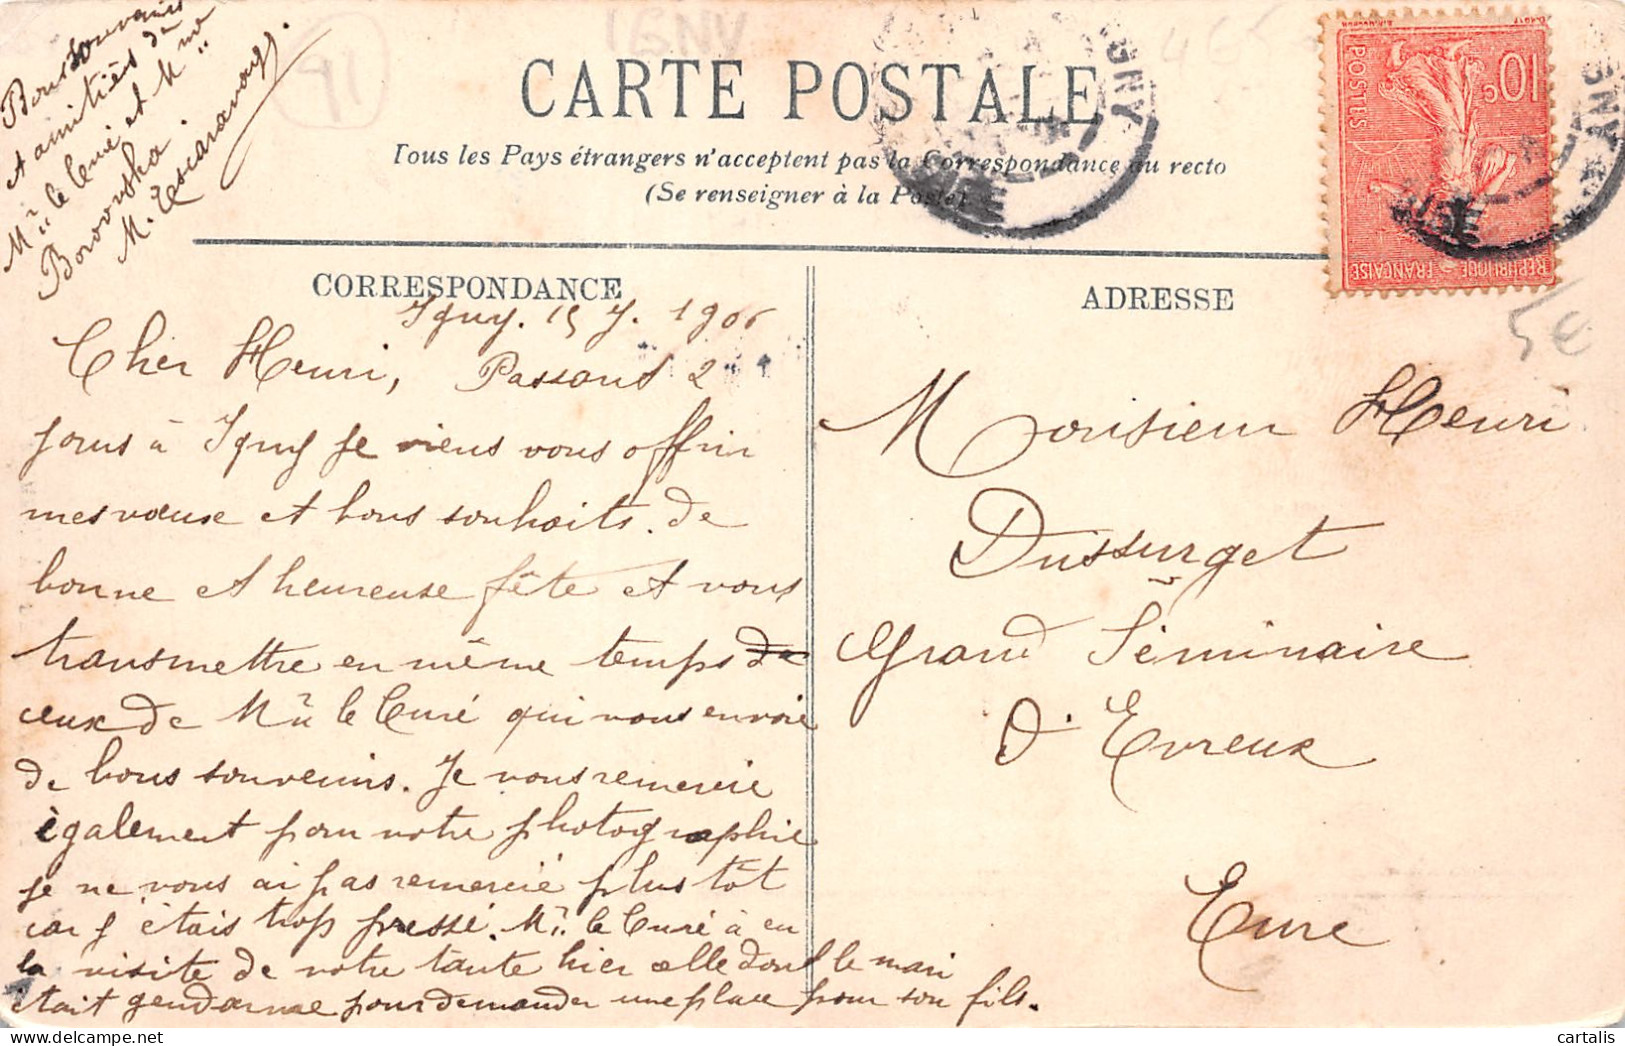 Bons Souvenirs
et amitiés de
Mr le Curé et Mme
Borowska.
91
IGNY
CARTE POSTALE
Tous les Pays étrangers n'acceptent pas la Correspondance au recto
(Se renseigner à la Poste)
10c
POSTES
RÉPUBLIQUE FRANÇAISE
5€
CORRESPONDANCE
Igny. 15 7. 1906
Cher Henri, Passant 2
jours à Igny je viens vous offrir
mes vœux et bons souhaits. de
bonne et heureuse fête et vous
transmettre en même temps de
ceux de Mr le Curé qui vous envoie
de bons souvenirs. Je vous remercie
également pour votre photographie
je ne vous ai pas remercié plus tôt
car j'étais trop pressé. Mr le Curé à eu
la visite de votre tante hier celle dont le mari
était gendarme pour demander une place pour son fils.
ADRESSE
Monsieur Henri
Dussurget
Grand Séminaire
d'Evreux
Eure
cartalis